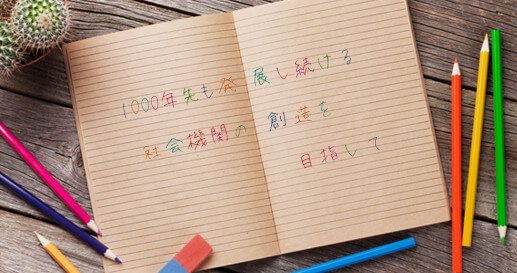 1000年先も発展し続ける
社会機関の創造を
目指して